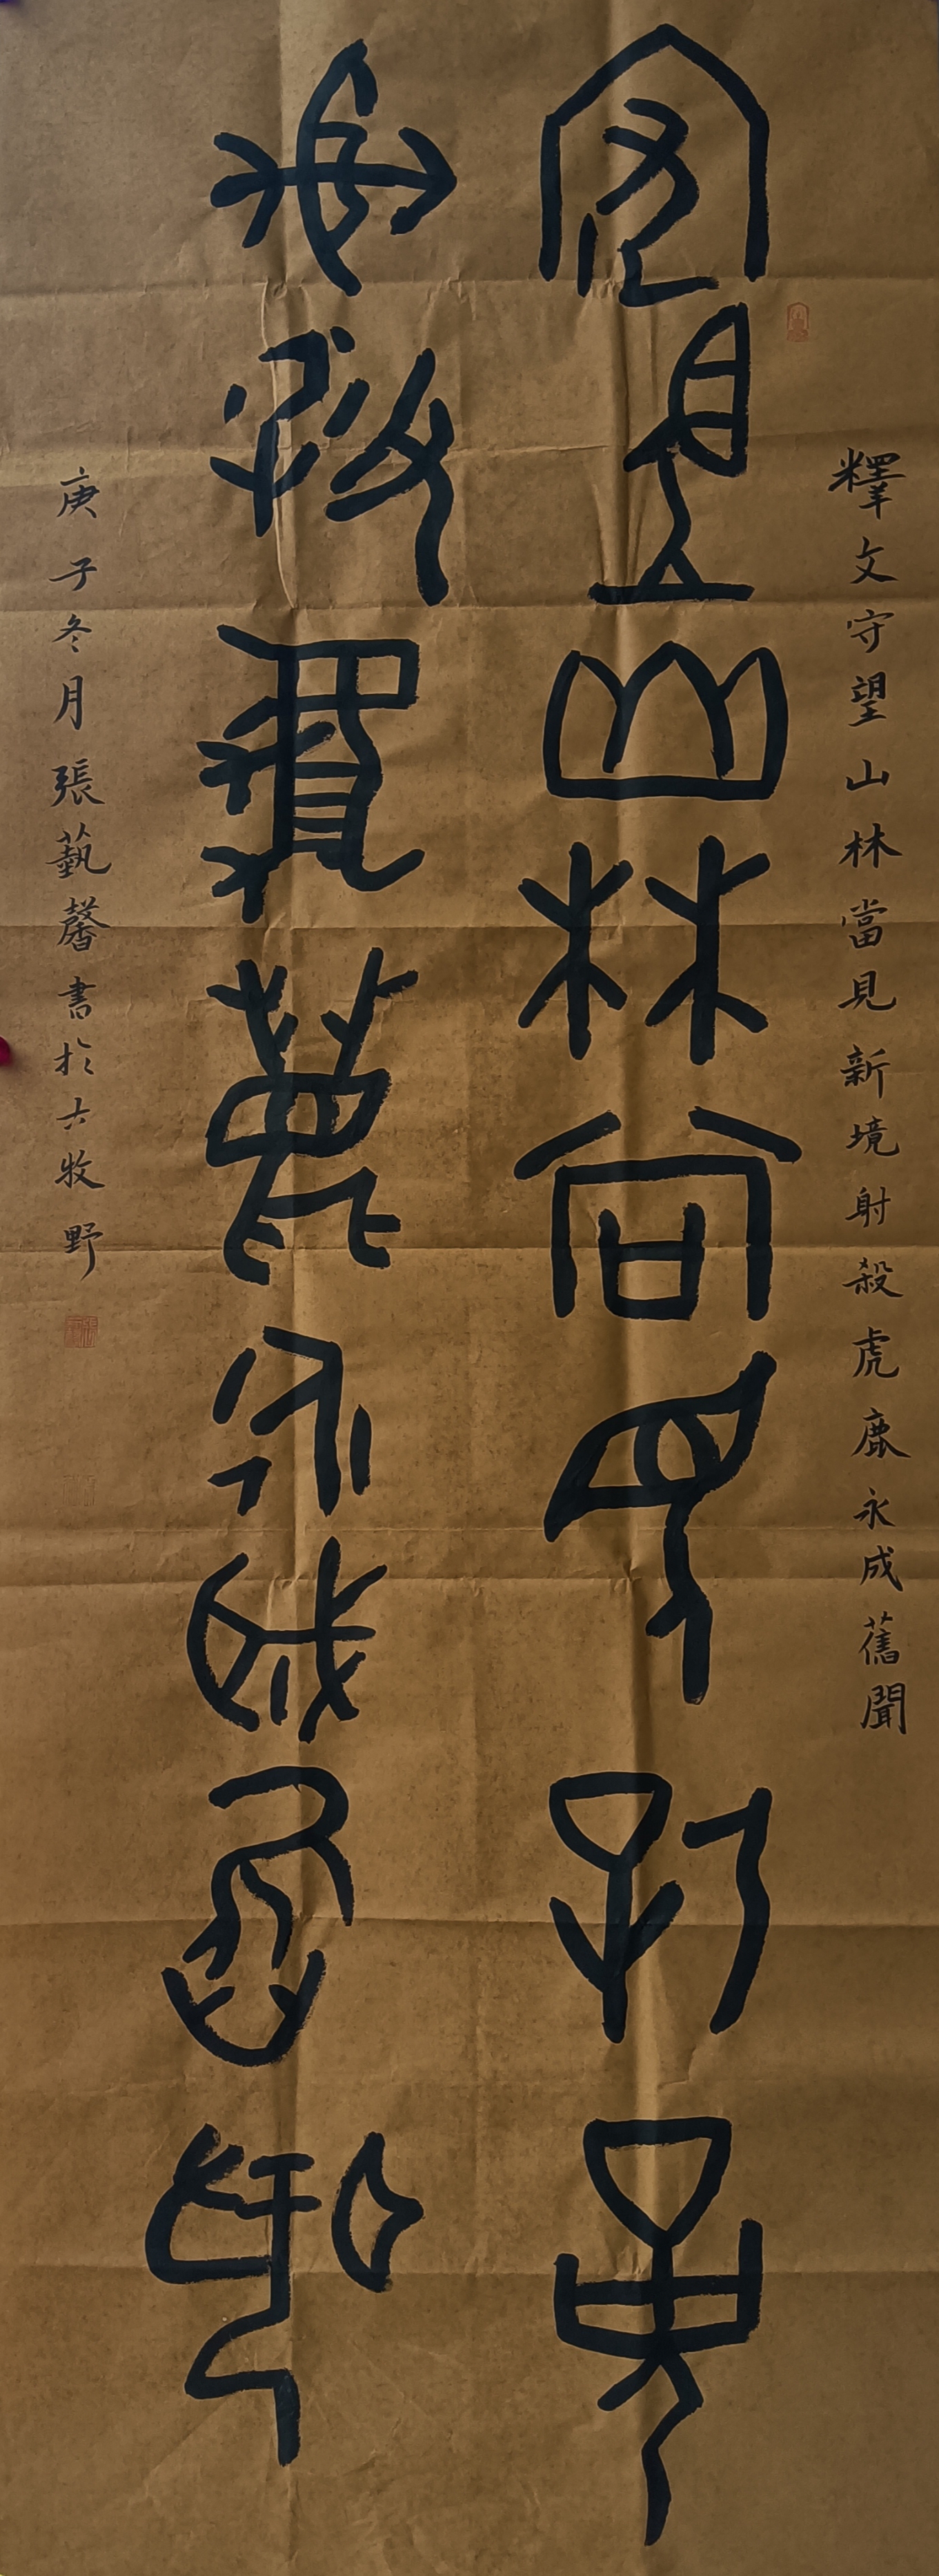 釋文守望山林當見新境射殺虎鹿永成舊聞
守望山林當見新境
射殺虎鹿永成舊聞
庚子冬月張藝馨書於六牧野